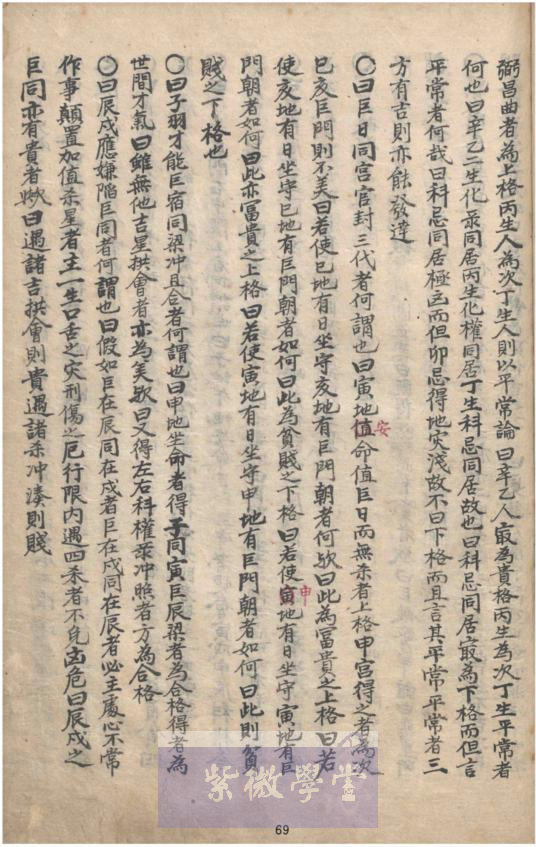 弼昌曲者為上格丙生人為次丁生人則以平常論曰辛乙人最為貴格丙生為次丁生平常者
何也曰辛乙二生化录同居丙生化權同居丁生科忌同居故也曰科忌同居最為下格而但言
平常者何哉曰科忌同居極凶而但卯忌得地灾淺故不曰下格而且言其平常平常者三
方有吉則亦能發達
〇曰巨日同宮官封三代者何謂也曰寅地值命值巨日而無杀者上格申宮得之者為次
安
巳亥巨門則不美曰若使巳地有日坐守亥地有巨門朝者何欤曰此為富貴之上格曰若
使亥地有日坐守巳地有巨門朝者如何曰此為貧賤之下格曰若使寅地有日坐守寅地有巨
申
門朝者如何曰此亦富貴之上格曰若使寅地有日坐守申地有巨門朝者如何曰此則貧
賤之下格也
〇曰子羽才能巨宿同梁冲且合者何謂也曰申地坐命者得子同寅巨辰梁者為合格得者為
世間才氣曰雖無他吉星拱會者亦為美欤曰又得左右科權录冲照者方為合格
〇曰辰戍應嫌陷巨同者何謂也曰假如巨在辰同在戍者巨在戍同在辰者必主處心不常
作事顛置加值杀星者主一生口舌之灾刑傷之厄行限内遇四杀者不免凶危曰辰戍之
巨同亦有貴者欤曰遇諸吉拱會則貴遇諸杀冲湊則賤
紫微學堂
69